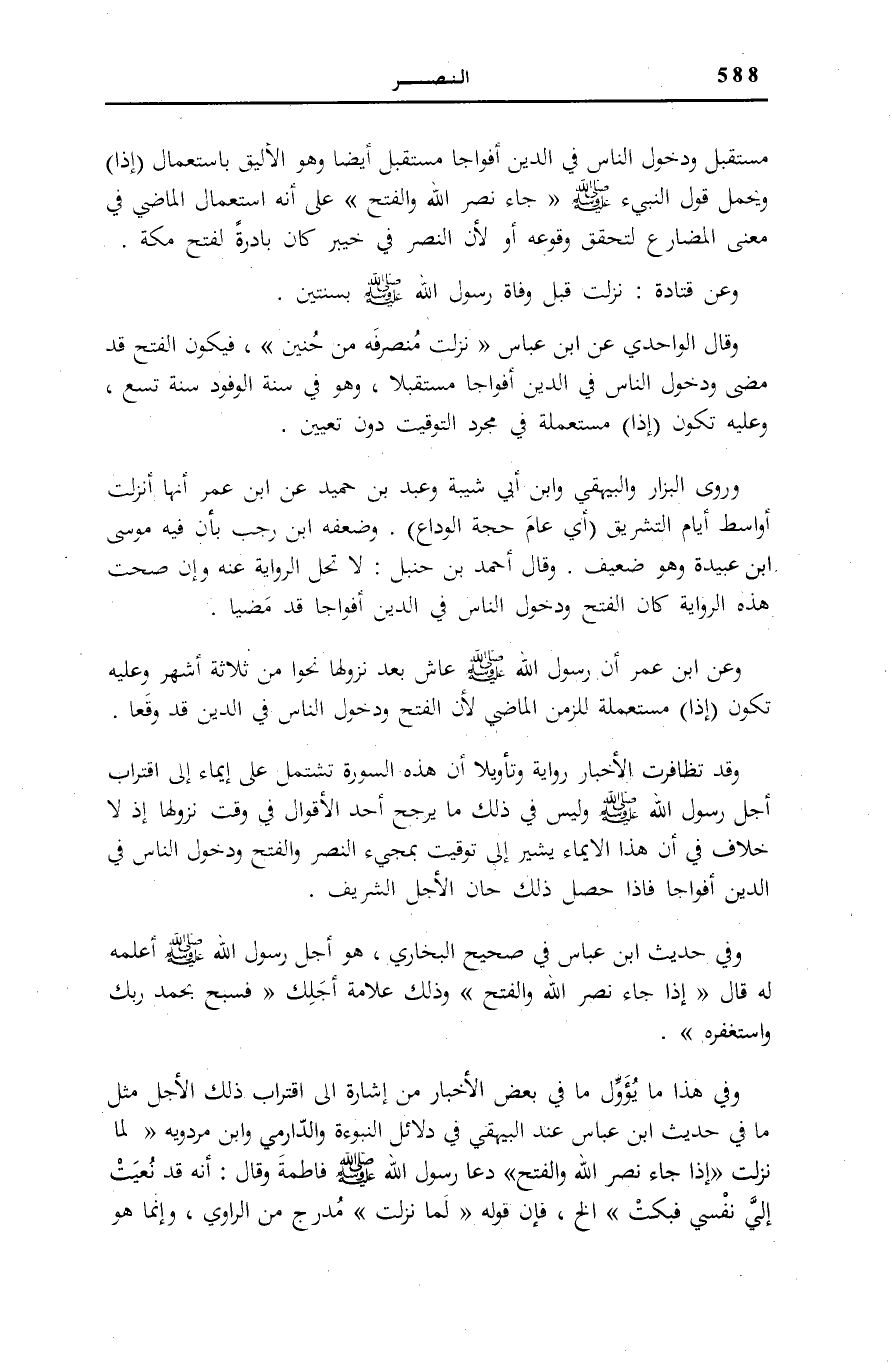 588
النصر
مستقبل ودخول الناس في الدين أفواجا مستقبل أيضا وهو الأليق باستعمال (إذا)
ويحمل قول النبيء ﷺ « جاء نصر الله والفتح » على أنه استعمال الماضي في
معنى المضارع لتحقق وقوعه أو لأن النصر في خيبر كان بادرةً لفتح مكة .
وعن قتادة : نزلت قبل وفاة رسول الله ﷺ بسنتين .
وقال الواحدي عن ابن عباس « نزلت مُنصرفَه من حُنين » ، فيكون الفتح قد
مضى ودخول الناس في الدين أفواجا مستقبلا ، وهو في سنة الوفود سنة تسع ،
وعليه تكون (إذا) مستعملة في مجرد التوقيت دون تعيين .
وروى البزار والبيهقي وابن أبي شيبة وعبد بن حميد عن ابن عمر أنها أنزلت
أواسط أيام التشريق (أي عامَ حجة الوداع) . وضعفه ابن رجب بأن فيه موسى
ابن عبيدة وهو ضعيف . وقال أحمد بن حنبل : لا تحل الرواية عنه وإن صحت
هذه الرواية كان الفتح ودخول الناس في الدين أفواجا قد مَضيا .
وعن ابن عمر أن رسول الله ﷺ عاش بعد نزولها نحوا من ثلاثة أشهر وعليه
تكون (إذا) مستعملة للزمن الماضي لأن الفتح ودخول الناس في الدين قد وقَعا .
وقد تظافرت الأخبار رواية وتأويلا أن هذه السورة تشتمل على إيماء إلى اقتراب
أجل رسول الله ﷺ وليس في ذلك ما يرجح أحد الأقوال في وقت نزولها إذ لا
خلاف في أن هذا الايماء يشير إلى توقيت بمجيء النصر والفتح ودخول الناس في
الدين أفواجا فاذا حصل ذلك حان الأجل الشريف .
وفي حديث ابن عباس في صحيح البخاري ، هو أجل رسول الله ﷺ أعلمه
له قال « إذا جاء نصر الله والفتح » وذلك علامة أجَلِك « فسبح بحمد ربك
واستغفره » .
وفي هذا ما يُؤَوِّل ما في بعض الأخبار من إشارة الى اقتراب ذلك الأجل مثل
ما في حديث ابن عباس عند البيهقي في دلائل النبوءة والدّارمي وابن مردويه « لما
نزلت «إذا جاء نصر الله والفتح» دعا رسول الله ﷺ فاطمةَ وقال : أنه قد نُعيَتْ
إليَّ نفْسي فبكتْ » الخ ، فإن قوله « لَما نزلت » مُدرج من الراوي ، وإنما هو